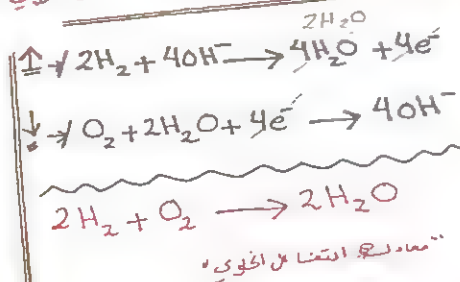 2H₂O
↑ → 2H₂ + 4OH⁻ → 4H₂O + 4e⁻
↓ → O₂ + 2H₂O + 4e⁻ → 4OH⁻
2H₂ + O₂ → 2H₂O
"معادلة التفاعل الخلوي"